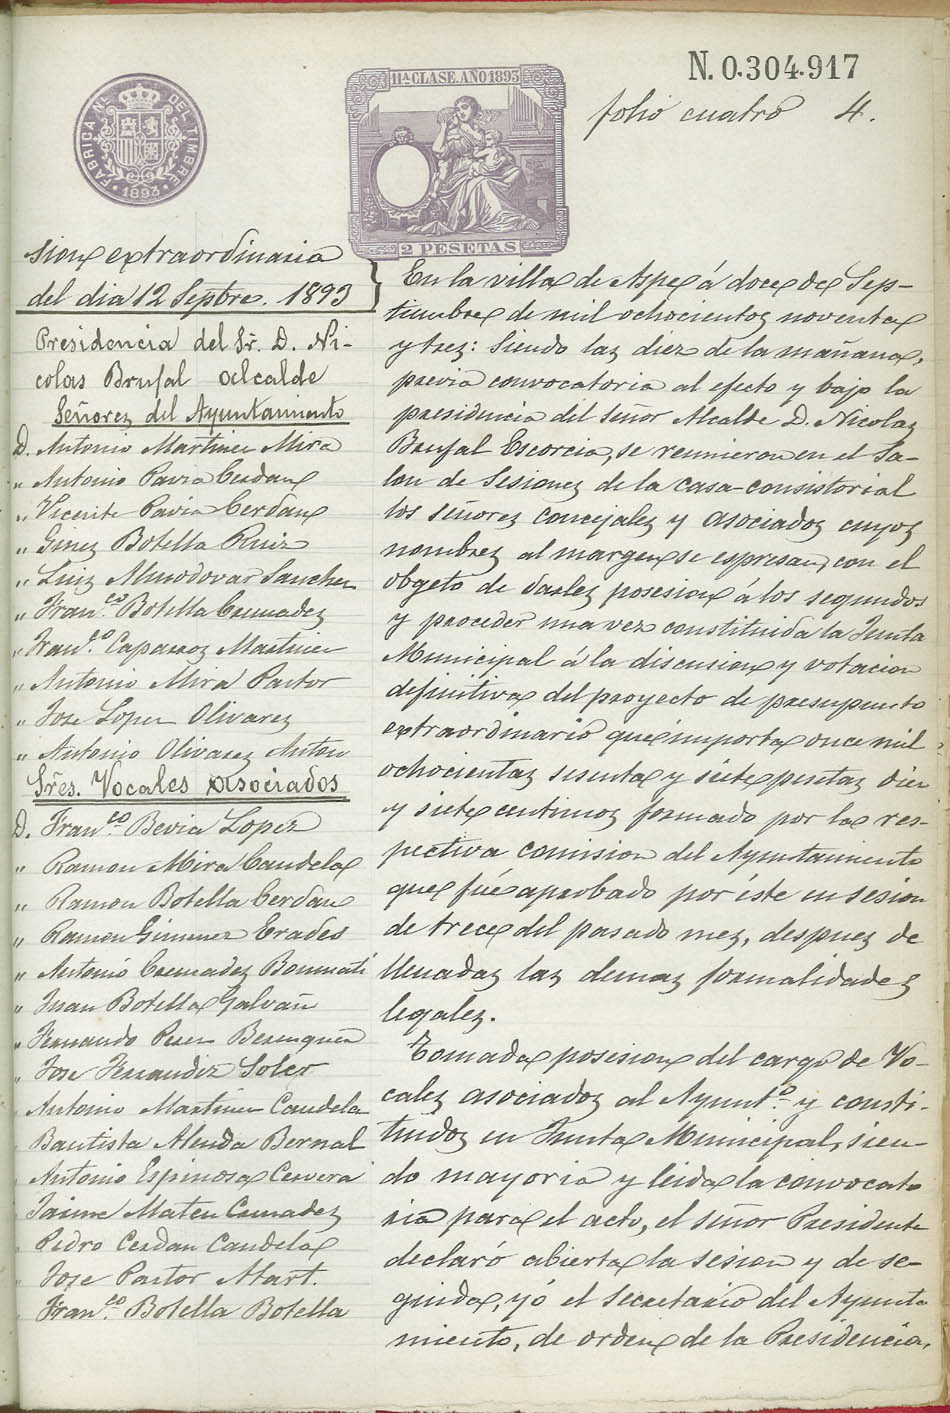 N. 0.304.917
folio cuatro 4.
FABRICA Nª. DEL TIMBRE
1893
11ª CLASE. AÑO 1893
2 PESETAS
sion extraordinaria
del dia 12 Septbre. 1893
Presidencia del Sr. D. Ni-
colas Brufal Alcalde
Señores del Ayuntamiento
D. Antonio Martinez Mira
" Antonio Pavia Cerdan
" Vicente Pavia Cerdan
" Gines Botella Ruiz
" Luis Almodovar Sanchez
" Fran.co Botella Cremades
" Fran.co Caparros Martinez
" Antonio Mira Pastor
" Jose Lopez Olivares
" Antonio Olivares Anton
Sres. Vocales Asociados
D. Fran.co Bevia Lopez
" Ramon Mira Candela
" Ramon Botella Cerdan
" Ramon Gimenez Erades
" Antonio Cremades Bonmati
" Juan Botella Galvañ
" Fernando Perez Berenguer
" Jose Fernandez Soler
" Antonio Martinez Candela
Bautista Alenda Bernal
" Antonio Espinosa Cervera
" Jaime Mateu Cremades
" Pedro Cerdan Candela
" Jose Pastor Mart.
" Fran.co Botella Botella
En la villa de Aspe á doce de Sep-
tiembre de mil ochocientos noventa
y tres: Siendo las diez de la mañana,
previa convocatoria al efecto y bajo la
presidencia del Señor Alcalde D. Nicolas
Brufal Escorcia, se reunieron en el Sa-
lon de Sesiones de la casa-consistorial
los señores concejales y asociados cuyos
nombres al margen se espresan, con el
obgeto de darles posesion á los segundos
y proceder una vez constituida la Junta
Municipal á la discusion y votacion
definitiva del proyecto de presupuesto
extraordinario que importa once mil
ochocientas sesenta y siete pesetas diez
y siete centimos formado por la res-
pectiva comision del Ayuntamiento
que fué aprobado por éste en sesion
de trece del pasado mes, despues de
llenadas las demas formalidades
legales.
Tomada posesion del cargo de Vo-
cales asociados al Ayunt.o y consti-
tuidos en Junta Municipal, sien-
do mayoria y leida la convocato
ria para el acto, el señor Presidente
declaró abierta la sesion y de se-
guida, yó el Secretario del Ayunta
miento, de orden de la Presidencia,